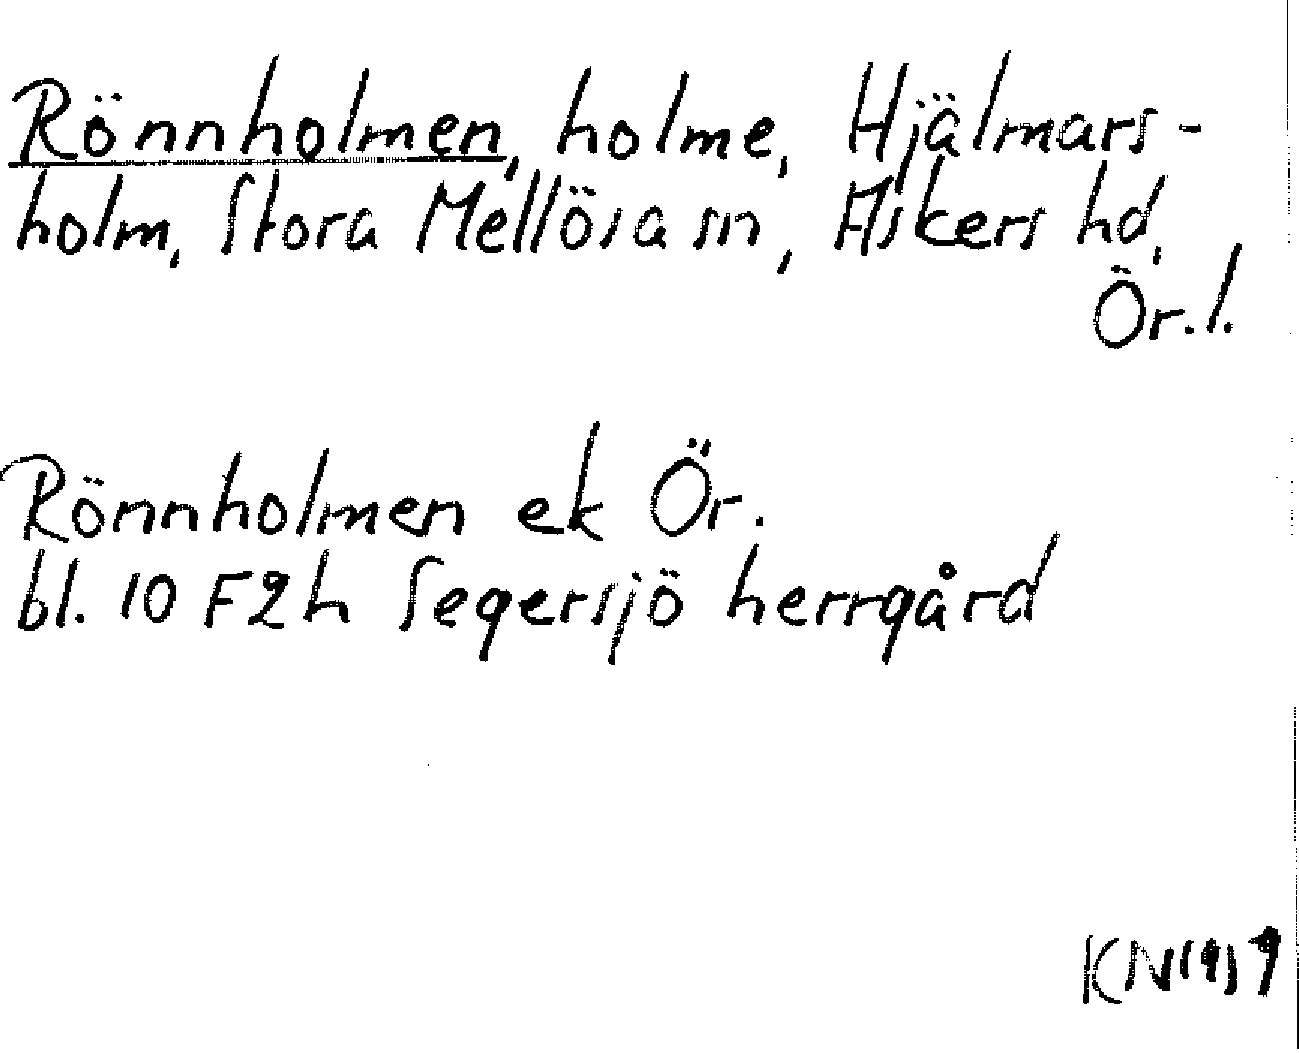 Rönnholmen, holme, Hjälmars-
holm, Stora Mellösa sn, Askers hd,
Ör. l.
Rönnholmen ek Ör.
bl. 10 F2h Segersjö herrgård